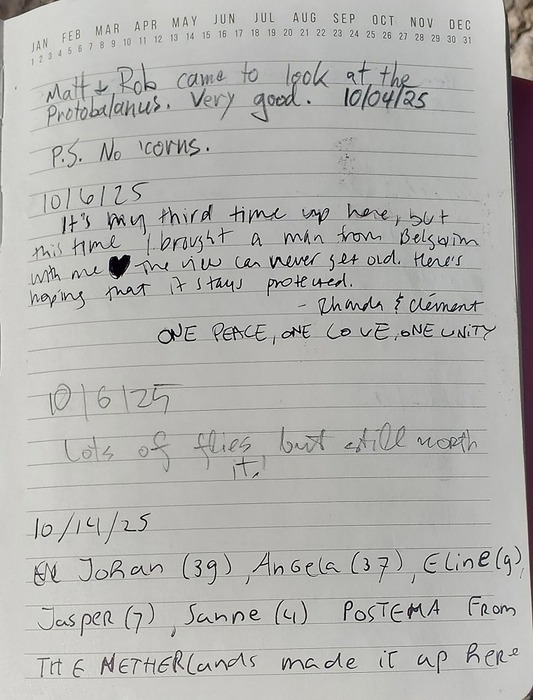 JAN FEB MAR APR MAY JUN JUL AUG SEP OCT NOV DEC
1 2 3 4 5 6 7 8 9 10 11 12 13 14 15 16 17 18 19 20 21 22 23 24 25 26 27 28 29 30 31
Matt & Rob came to look at the
Protobalanus. Very good. 10/04/25
P.S. No 'corns.
10/6/25
It's my third time up here, but
this time I brought a man from Belguim
with me ♥ The view can never get old. Here's
hoping that it stays protected.
- Rhanda & Clément
ONE PEACE, ONE LOVE, ONE UNITY
10/6/25
Lots of flies, but still worth
it!
10/14/25
JOHAN (39), ANGELA (37), ELINE (9),
JASPER (7), SANNE (4) POSTEMA FROM
THE NETHERLANDS made it up here